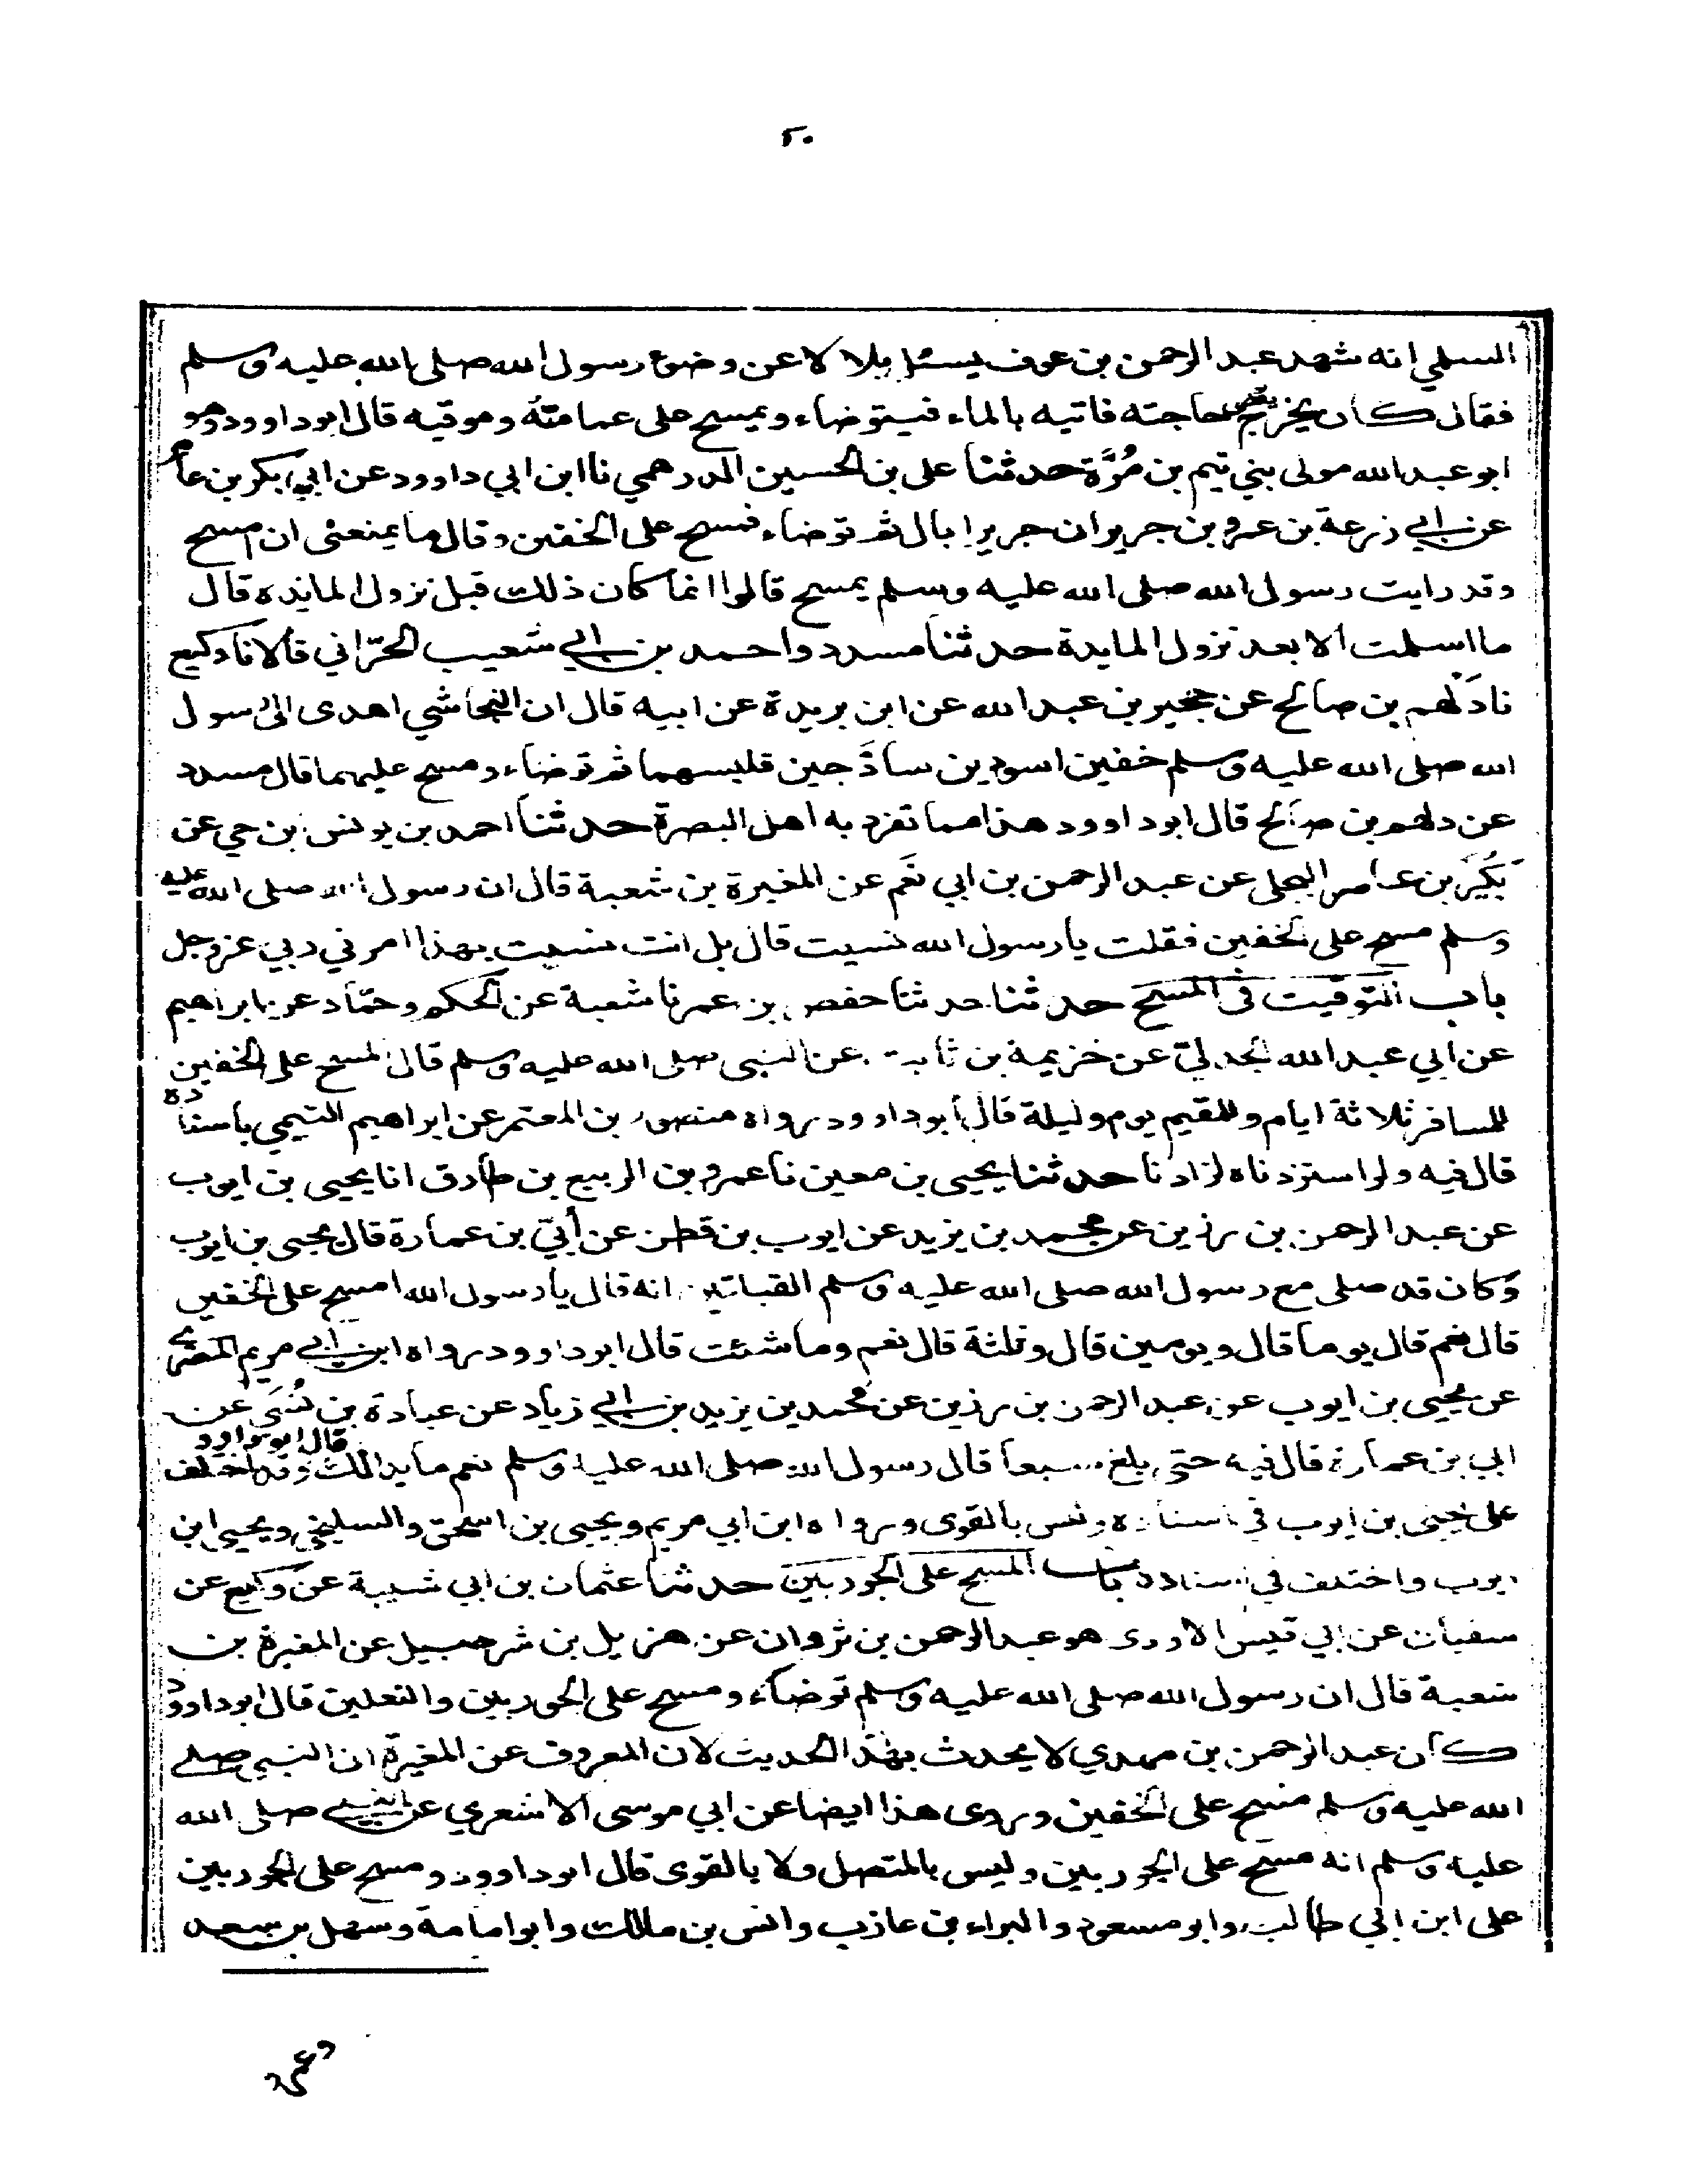 ٢٠
السلمي انه شهد عبد الرحمن بن عوف يسئل بلالا عن وضوء رسول الله صلى الله عليه وسلم
فقال كان يخرج يقضى حاجته فاتيه بالماء فيتوضاء ويمسح على عمامته وموقيه قال ابو داوود وهو
ابو عبد الله مولى بني تيم بن مُرَّة حدثنا على بن الحسين الدرهمي نا ابن ابي داوود عن ابي بكر بن عامر
عن ابي زرعة بن عمرو بن جرير ان جريرا بال ثم توضاء فمسح على الخفين وقال ما يمنعنى ان امسح
وقد رايت رسول الله صلى الله عليه وسلم يمسح قالوا انما كان ذلك قبل نزول المايده قال
ما اسلمت الا بعد نزول المايدة حدثنا مسدد واحمد بن ابي شعيب الحرّاني قالا نا وكيع
نا دَلهم بن صالح عن حجير بن عبد الله عن ابن بريدة عن ابيه قال ان النجاشي اهدى الى رسول
الله صلى الله عليه وسلم خفين اسودين ساذَجين فلبسهما ثم توضاء ومسح عليهما قال مسدد
عن دلهم بن صالح قال ابو داوود هذا مما تفرد به اهل البصرة حدثنا احمد بن يونس بن حي عن
بُكَير بن عامر البجلى عن عبد الرحمن بن ابي نعَم عن المغيرة بن شعبة قال ان رسول الله صلى الله عليه
وسلم مسح على الخفين فقلت يا رسول الله نسيت قال بل انت نسيت بهذا امرني ربي عز وجل
باب التوقيت في المسح حدثنا حدثنا حفص بن عمر نا شعبة عن الحكم وحمّاد عن ابراهيم
عن ابي عبد الله الجدليّ عن خزيمة بن ثابت عن النبى صلى الله عليه وسلم قال المسح على الخفين
للمسافر ثلاثة ايام وللمقيم يوم وليلة قال ابو داوود رواه منصور بن المعتمر عن ابراهيم التيمي باسناده
قال فيه ولو استزدناه لزادنا حدثنا يحيى بن معين نا عمرو بن الربيع بن طارق انا يحيى بن ايوب
عن عبد الرحمن بن رزين عن محمد بن يزيد عن ايوب بن قطن عن أبيّ بن عمارة قال يحيى بن ايوب
وكان قد صلى مع رسول الله صلى الله عليه وسلم القبلتين انه قال يا رسول الله امسح على الخفين
قال نعم قال يوما قال ويومين قال وثلثة قال نعم وما شئت قال ابو داوود رواه ابن ابي مريم المصري
عن يحيى بن ايوب عن عبد الرحمن بن رزين عن محمد بن يزيد بن ابي زياد عن عبادة بن نُسَى عن
ابي بن عمارة قال فيه حتى بلغ سبعا قال رسول الله صلى الله عليه وسلم نعم ما بدا لك قال ابو داوود وقد اختلف
على يحيى بن ايوب في اسناده وليس بالقوى ورواه ابن ابي مريم ويحيى بن اسحق والسليخي ويحيى ابن
ايوب واختلف في اسناده باب المسح على الجوربين حدثنا عثمان بن ابي شيبة عن وكيع عن
سفيان عن ابي قيس الاودى هو عبد الرحمن بن ثروان عن هزيل بن شرحبيل عن المغيرة بن
شعبة قال ان رسول الله صلى الله عليه وسلم توضاء ومسح على الجوربين والنعلين قال ابو داوود
كان عبد الرحمن بن مهدي لا يحدث بهذا الحديث لان المعروف عن المغيرة ان النبي صلى
الله عليه وسلم مسح على الخفين وروى هذا ايضا عن ابي موسى الاشعري عن النبي صلى الله
عليه وسلم انه مسح على الجوربين وليس بالمتصل ولا بالقوى قال ابو داوود ومسح على الجوربين
على ابن ابي طالب وابو مسعود والبراء بن عازب وانس بن مالك وابو امامة وسهل بن سعد
وعمرو